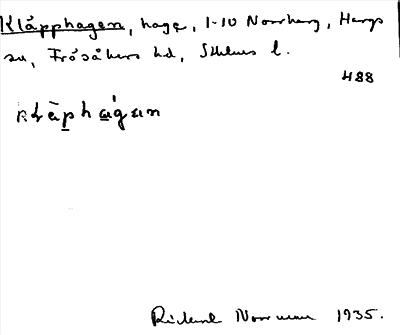 Kläpphagen, hage, 1-10 Norrberg, Hargs
sn, Frösåkers hd, Sthlms l.
488
klàp̲hágan
Rickard Norrman 1935.